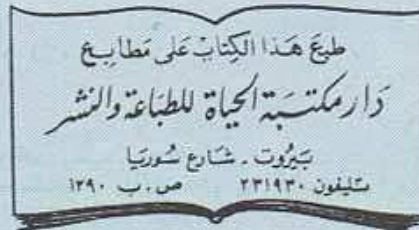 طبعَ هَذا الكِتابْ عَلى مَطابِع
دَار مكتَبَة الحيَاة للطبَاعَة وَالنشر
بَيروُت . شَارع سُوريَا
تليفون ٢٣١٩٣٠ ص . ب ١٣٩٠